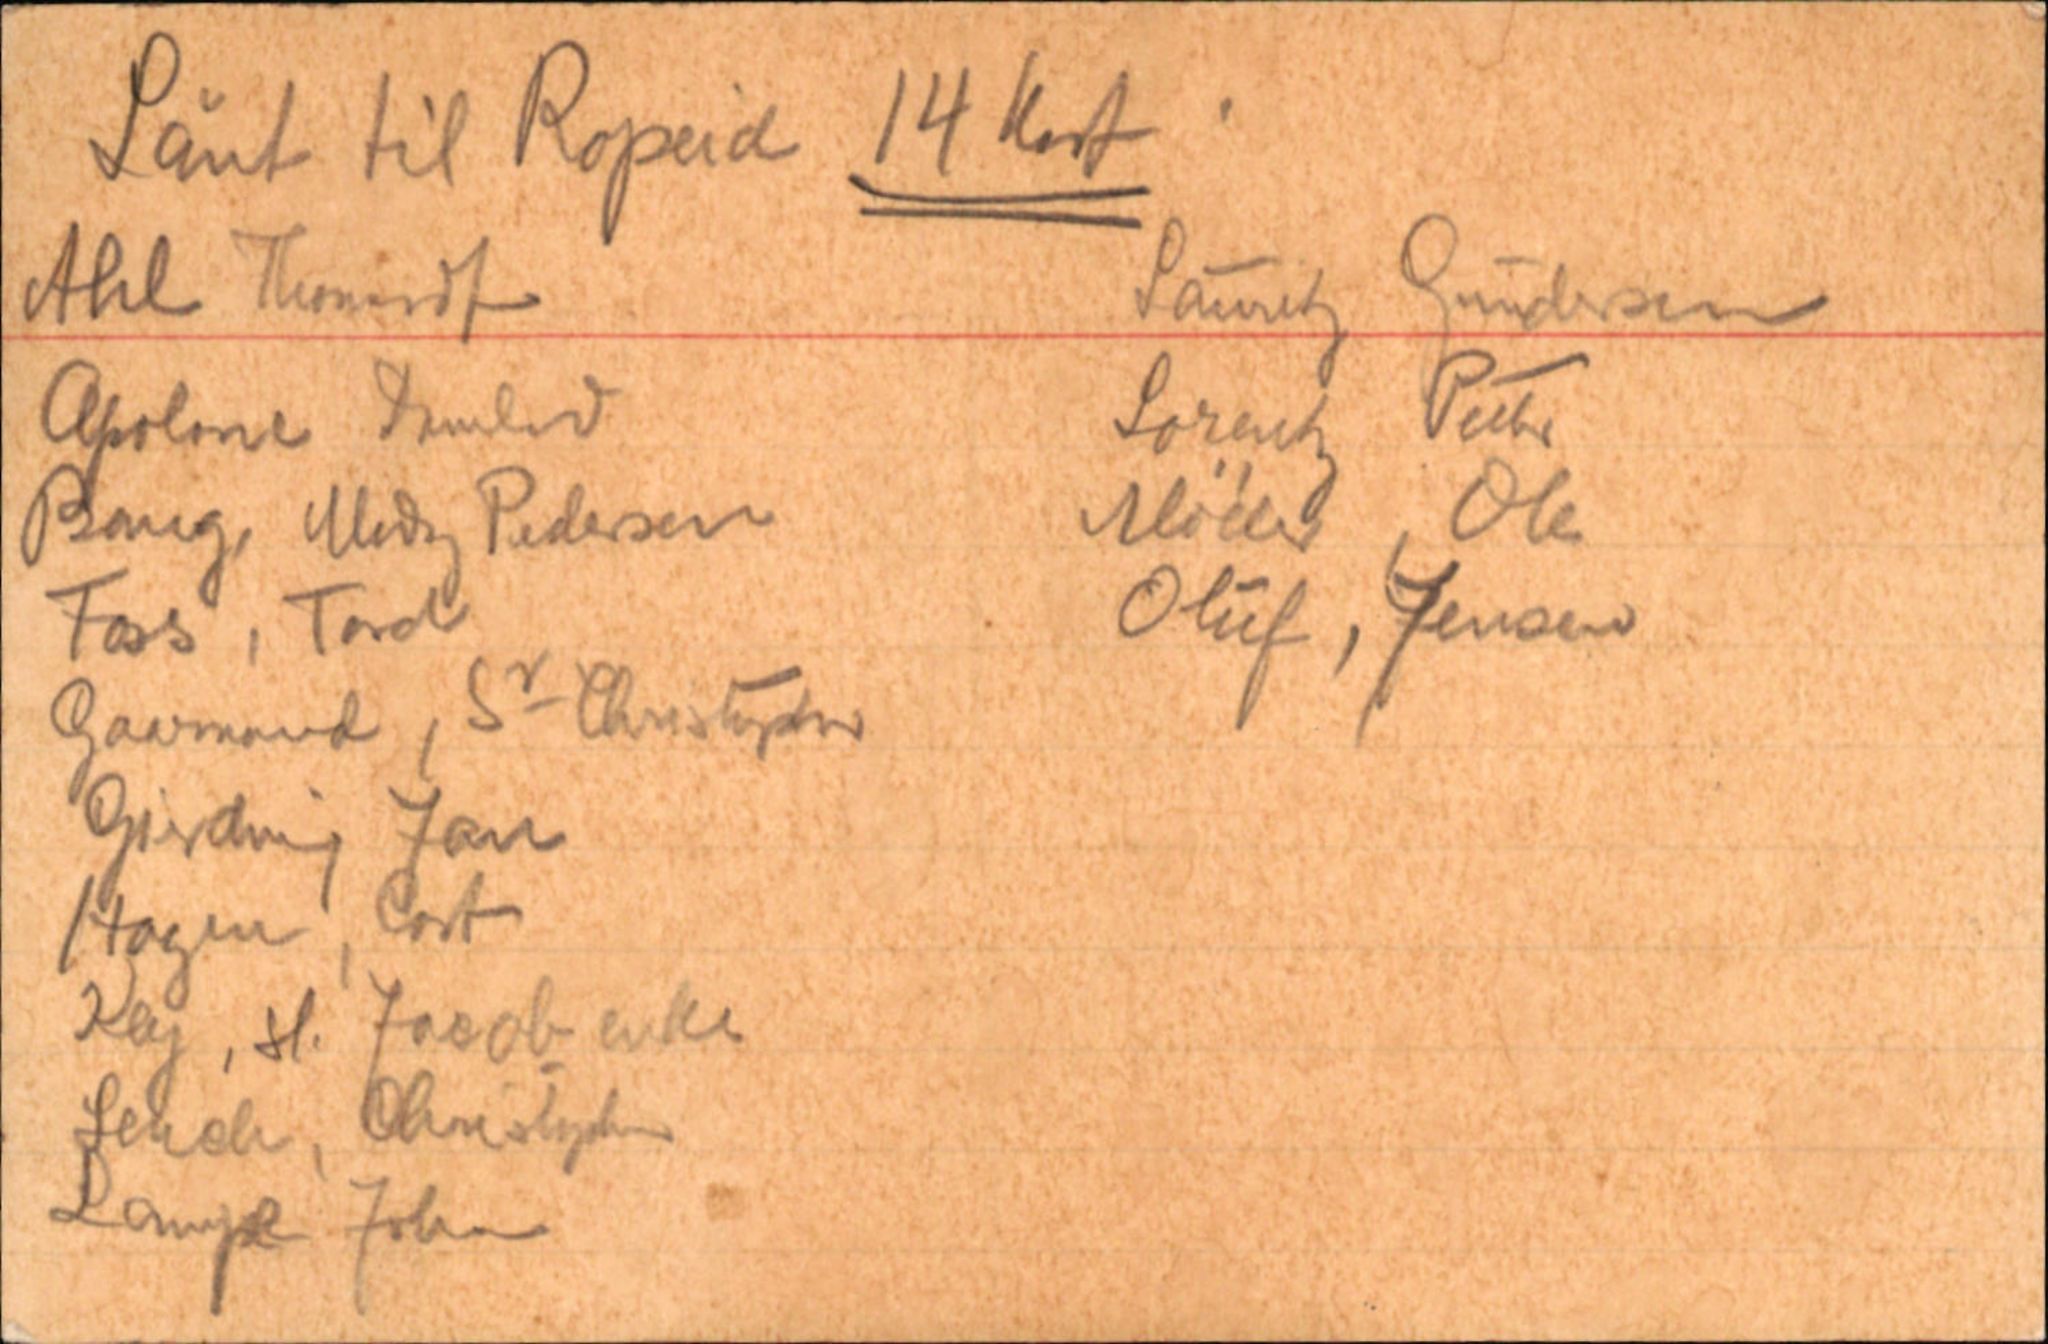 Lånt til Ropeid 14 kort.
Ahl
Apolone
Bang, Mads Pedersen
Foss, Tord
Gaarmand, Sr Christopher
Gierding Jan
Hagen, Cort
Key, H. Jacob enke
Lerch, Christopher
Lampe John
Lauritz Gundersen
Lorentz Petter
Möller, Ole
Oluf, Jensen